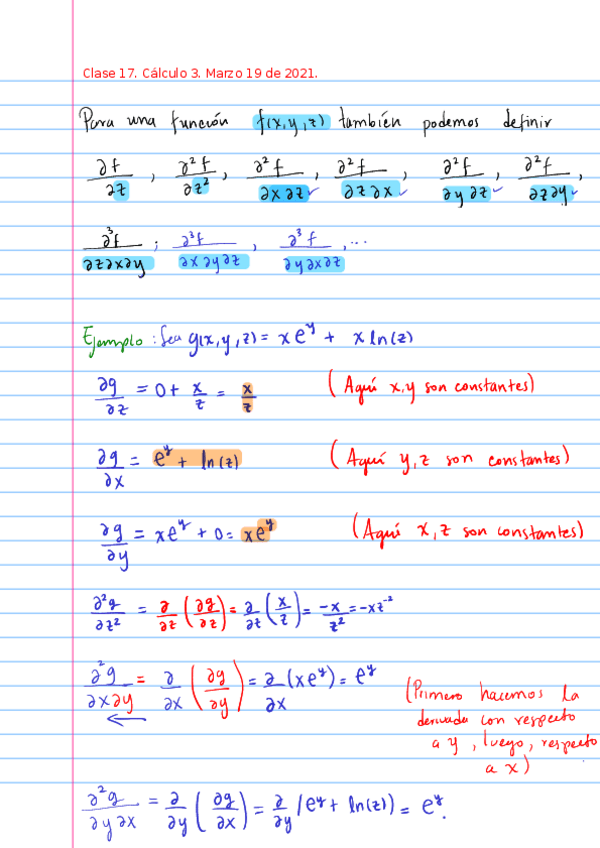 Clase 17. Cálculo 3. Marzo 19 de 2021.
Para una función f(x,y,z) también podemos definir
∂f/∂z , ∂²f/∂z² , ∂²f/∂x∂z ✓ , ∂²f/∂z∂x ✓ , ∂²f/∂y∂z ✓ , ∂²f/∂z∂y ✓ ,
∂³f/∂z∂x∂y ; ∂³f/∂x∂y∂z , ∂³f/∂y∂x∂z , ...
Ejemplo : Sea g(x,y,z) = xe^y + x ln(z)
∂g/∂z = 0 + x/z = x/z (Aquí x,y son constantes)
∂g/∂x = e^y + ln(z) (Aquí y,z son constantes)
∂g/∂y = xe^y + 0 = xe^y (Aquí x,z son constantes)
∂²g/∂z² = ∂/∂z (∂g/∂z) = ∂/∂z (x/z) = -x/z² = -xz^-2
∂²g/∂x∂y = ∂/∂x (∂g/∂y) = ∂/∂x (xe^y) = e^y
(Primero hacemos la
derivada con respecto
a y , luego, respecto
a x)
∂²g/∂y∂x = ∂/∂y (∂g/∂x) = ∂/∂y (e^y + ln(z)) = e^y.